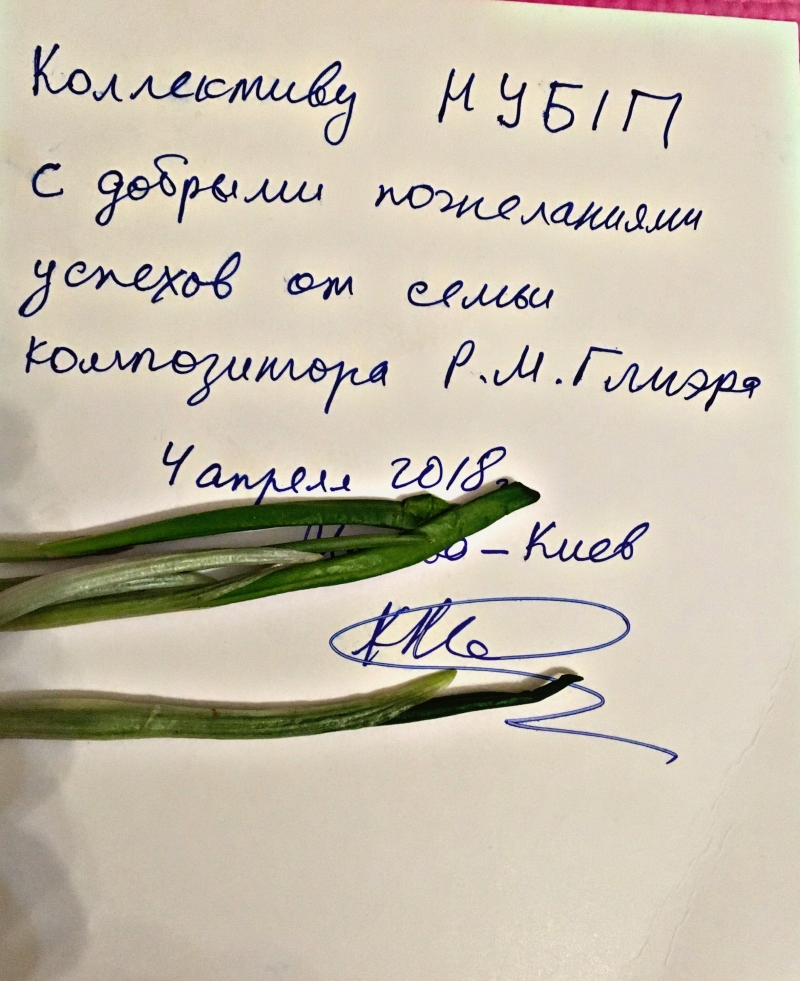 Коллективу НУБІП
с добрыми пожеланиями
успехов от семьи
композитора Р.М.Глиэра
4 апреля 2018
– Киев